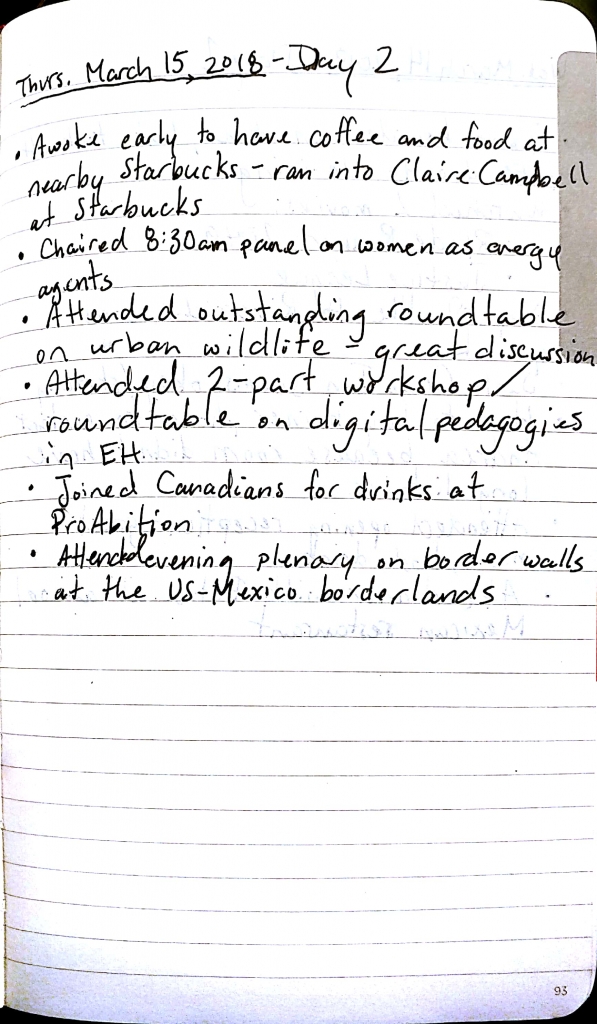 Thurs. March 15, 2018 - Day 2
• Awoke early to have coffee and food at
nearby Starbucks - ran into Claire Campbell
at Starbucks
• Chaired 8:30am panel on women as energy
agents
• Attended outstanding roundtable
on urban wildlife - great discussion
• Attended 2-part workshop/
roundtable on digital pedagogies
in EH.
• Joined Canadians for drinks at
ProAbition
• Attended evening plenary on border walls
at the US-Mexico borderlands
93